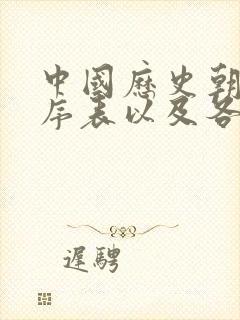 中國歷史朝
序表以及各
遲騁